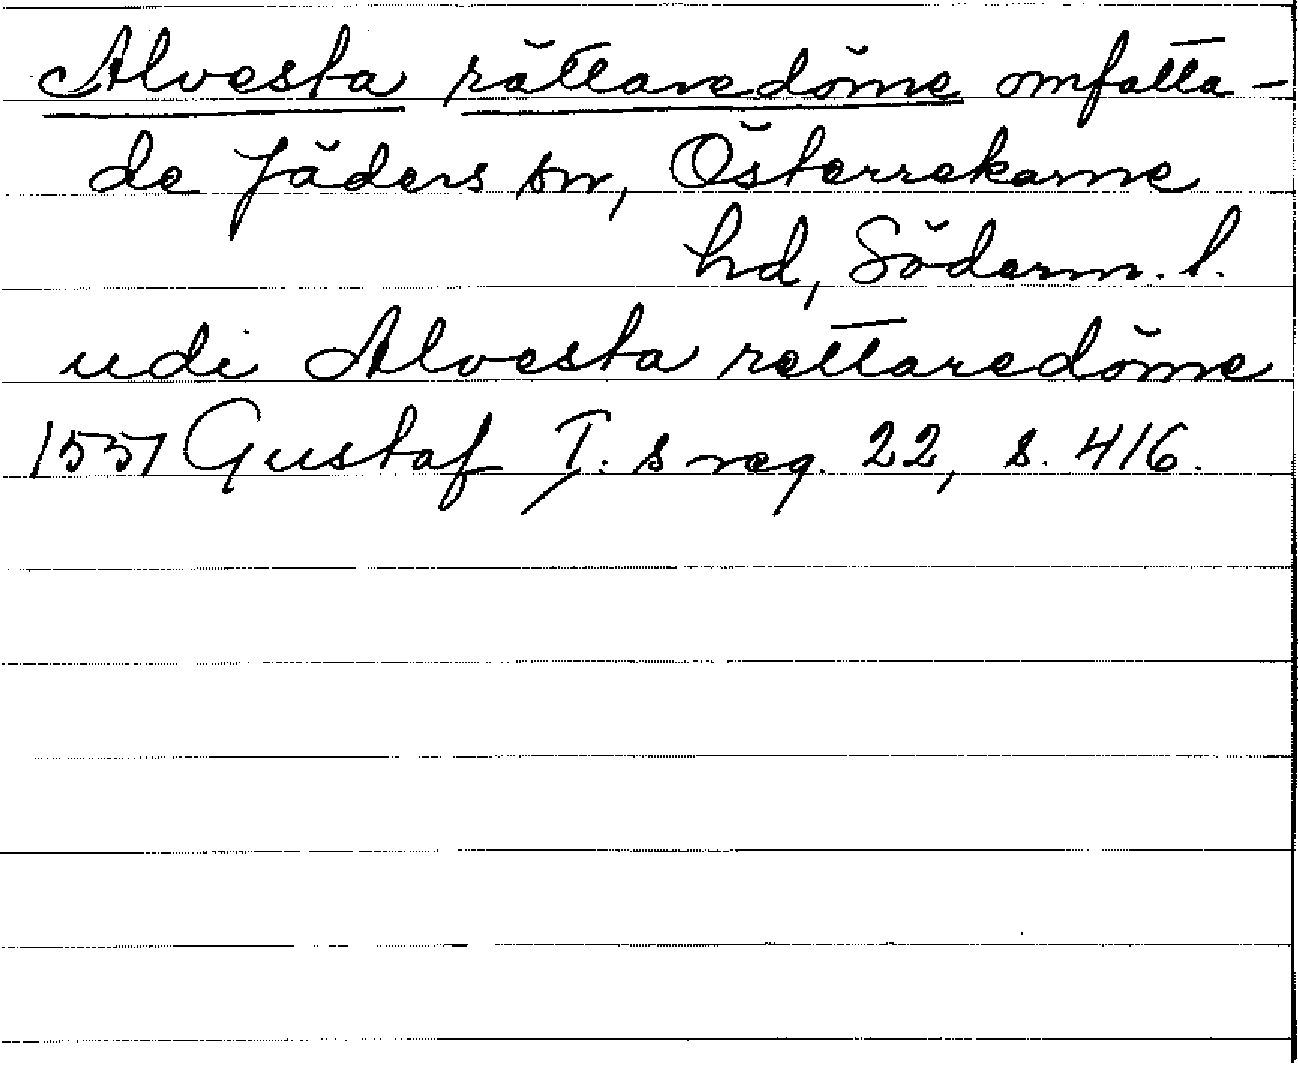 Alvesta rättaredöme omfatta-
de Jäders sn, Österrekarne
hd, Söderm. l.
udi Alvesta rettaredöme
1551 Gustaf I:s reg. 22, s. 416.